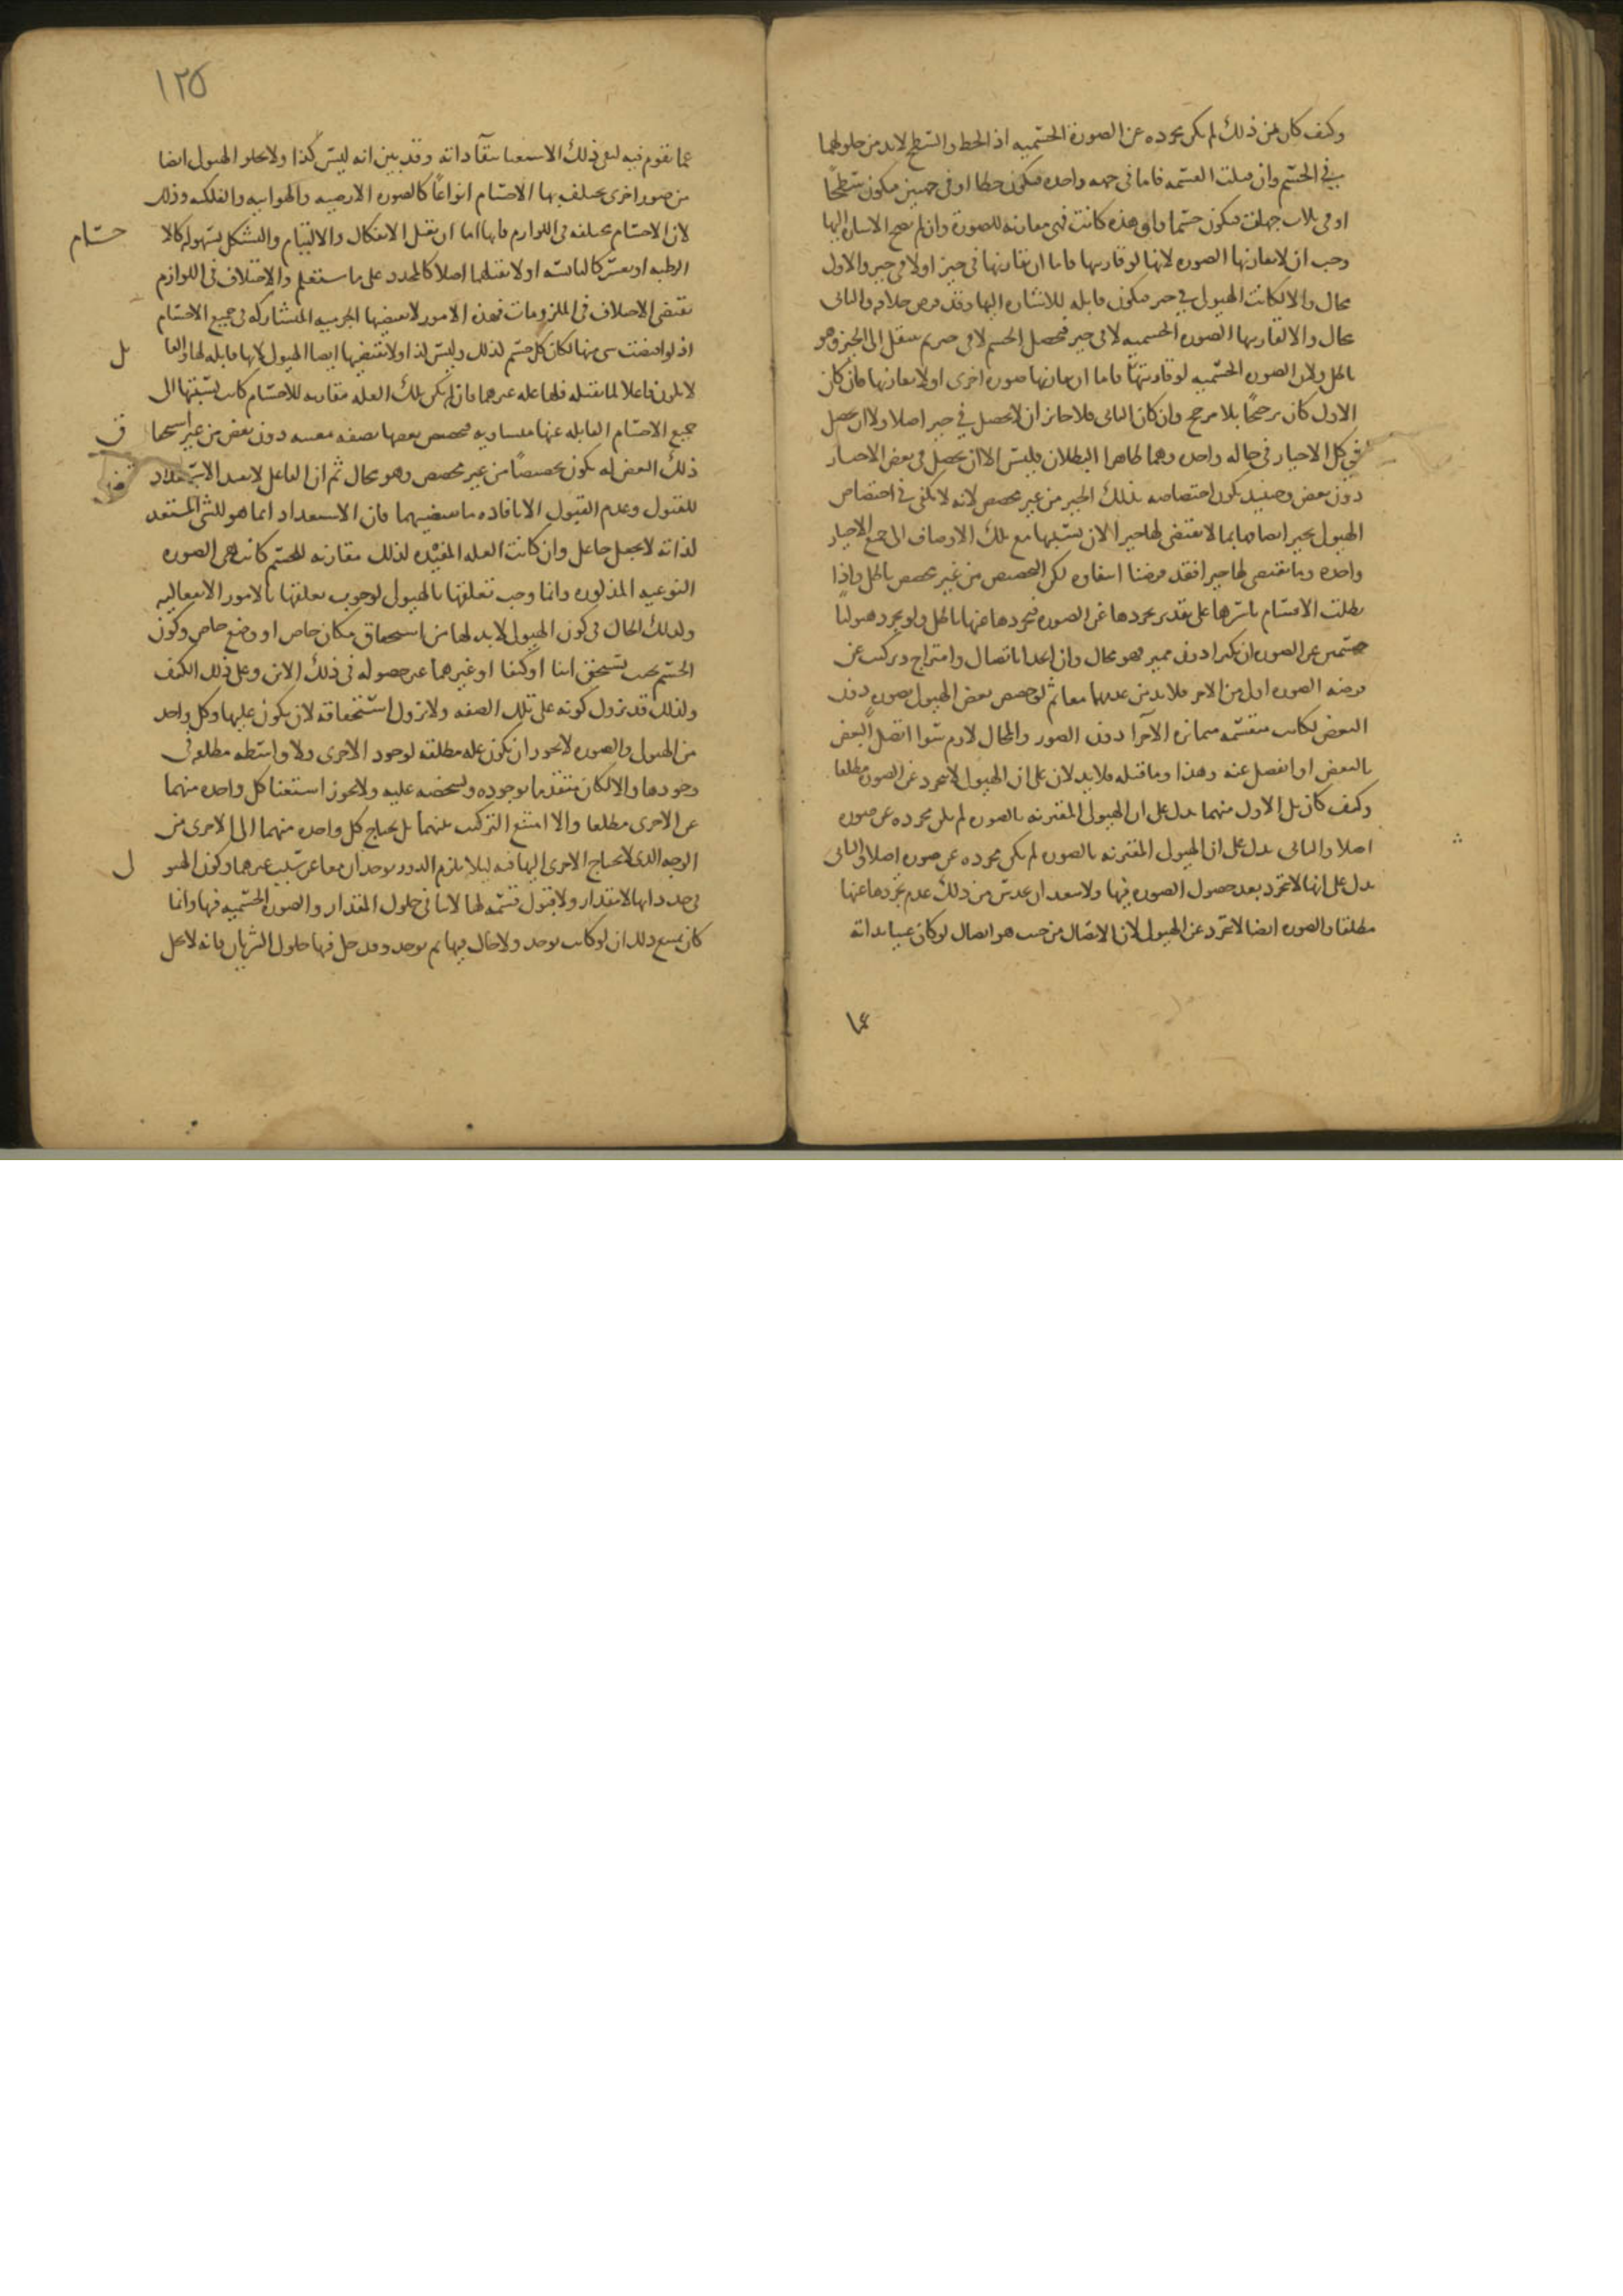 وكيف كان من ذلك لم يكن مجرده عن الصورة الجسميه اذ الخط والسطح لابد من حلولهما
في الجسم وان قبلت القسمه فاما في جهه واحده فيكون خطا او في جهتين فيكون سطحا
او في ثلاث جهات فيكون جسما واى هذه كانت فهي مقارنه للصورة وان لم تصح الاشاره اليها
وجب ان لا تقارنها الصوره لانها لو قارنتها فاما ان تقارنها في حيز او لا في حيز والاول
محال والا لكانت الهيولى في حيز فيكون قابله للاشاره اليها وقد فرض خلافه والثاني
محال والا لتقارنها الصوره الجسميه لا في حيز فيحصل الجسم لا في حيز ثم ينتقل الى الحيز وهو
باطل ولان الصوره الجسميه لو قارنتها فاما ان قارنها صوره اخرى او لا تقارنها فان كان
الاول كان ترجحا بلا مرجح وان كان الثاني فلا جائز ان لا يحصل في حيز اصلا ولا ان يحصل
في كل الاحياز في حاله واحده وهما ظاهرا البطلان فليس الا ان يحصل في بعض الاحياز
دون بعض وحينئذ يكون اختصاصه بذلك الحيز من غير مخصص لانه لا يكفي في اختصاص
الهيولى بحيز اتصافها بما لا يقتضي لها حيزا لان نسبتها مع تلك الاوصاف الى جميع الاحياز
واحده وما يقتضي لها حيزا فقد فرضنا انتفاوه لكن التخصيص من غير مخصص باطل واذا
بطلت الاقسام باسرها على تقدير تجردها عن الصوره فتجردها عنها باطل ولو تجرد هيوليا
جسمين عن الصوره ان تكثرا دون مميز فهو محال وان اتحدا باتصال وامتزاج وتركيب عن
فرضه الصوره اول من الامر فلابد من عدمها معا ثم لو خصص بعض الهيولى بصوره دون
البعض لكانت منقسمه متمايزه الاجزا دون الصور والمحال لازم سوا اتصل البعض
بالبعض او انفصل عنه وهذا وما قبله فلا يدلان على ان الهيولى لا تتجرد عن الصوره مطلقا
وكيف كان بل الاول منهما يدل على ان الهيولى المقترنه بالصوره لم يكن مجرده عن صوره
اصلا والثاني يدل على ان الهيولى المقترنه بالصوره لم يكن مجرده عن صوره اصلا والثاني
يدل على انها لا تتجرد بعد حصول الصوره فيها ولا يبعد ان يحدس من ذلك عدم تجردها عنها
مطلقا والصوره ايضا لا تتجرد عن الهيولى لان الاتصال من حيث هو اتصال لو كان غنيا بذاته
عما
١٢٥
عما يقوم فيه لبقى ذلك الاستغنا ببقا ذاته وقد بين انه ليس كذا ولا تخلو الهيولى ايضا
من صور اخرى يختلف بها الاجسام انواعا كالصوره الارضيه والهوائيه والفلكيه وذلك
لان الاجسام مختلفه في اللوازم فانها اما ان تقبل الانفكاك والالتيام والتشكل بسهوله كالا
جسام
الرطبه او بعسر كاليابسه او لا تقبلهما اصلا كالمحدد على ما ستعلم والاختلاف في اللوازم
يقتضي الاختلاف في الملزومات فهذه الامور لا تقتضيها الجرميه المتشاركه في جميع الاجسام
اذ لو اقتضت شي منها لكان كل جسم لذلك وليس كذا ولا تقتضيها ايضا الهيولى لانها قابله لها والقا
بل
لا يكون فاعلا لما يقبله فلها عله غيرهما فان لم يكن تلك العله مقارنه للاجسام كانت نسبتها الى
جميع الاجسام القابله عنها متساويه فتخصص بعضها بصفه معينه دون بعض من غير استحقا
ق
ذلك البعض له يكون تخصيصا من غير مخصص وهو محال ثم ان الفاعل لا يعيد الاستعداد
للقبول وعدم القبول الا بافاده ما يقتضيهما فان الاستعداد انما هو للشي المستعد
لذاته لا بجعل جاعل وان كانت العله المفيده لذلك مقارنه للجسم كانت هي الصوره
النوعيه المذكوره وانما وجب تعلقها بالهيولى لوجوب تعلقها بالامور الانفعاليه
وكذلك الحال في كون الهيولى لابد لها من استحقاق مكان خاص او وضع خاص وكون
الجسم بحيث يستحق اينا او كيفا او غيرهما غير حصوله في ذلك الاين وعلى ذلك الكيف
ولذلك قد يزول كونه على تلك الصفه ولا يزول استحقاقه لان يكون عليها وكل واحد
من الهيولى والصوره لا يجوز ان يكون عله مطلقه لوجود الاخرى ولا واسطه مطلقه في
وجودها والا لكان متقدما بوجوده وتشخصه عليه ولا يجوز استغنا كل واحده منهما
عن الاخرى مطلقا والا امتنع التركيب بينهما بل يحتاج كل واحده منهما الى الاخرى من
الوجه الذي لا يحتاج الاخرى اليها فيه ليلا يلزم الدور يوجدان معا عن سبب غيرهما وكون الهيو
لى
في حد ذاتها لا مقدار ولا قبول قسمه لها لا ينافي حلول المقدار والصوره الجسميه فيها وانما
كان يمنع ذلك ان لو كانت توجد ولا حال فيها ثم توجد وقد حل فيها حلول السريان فانه لا يحل